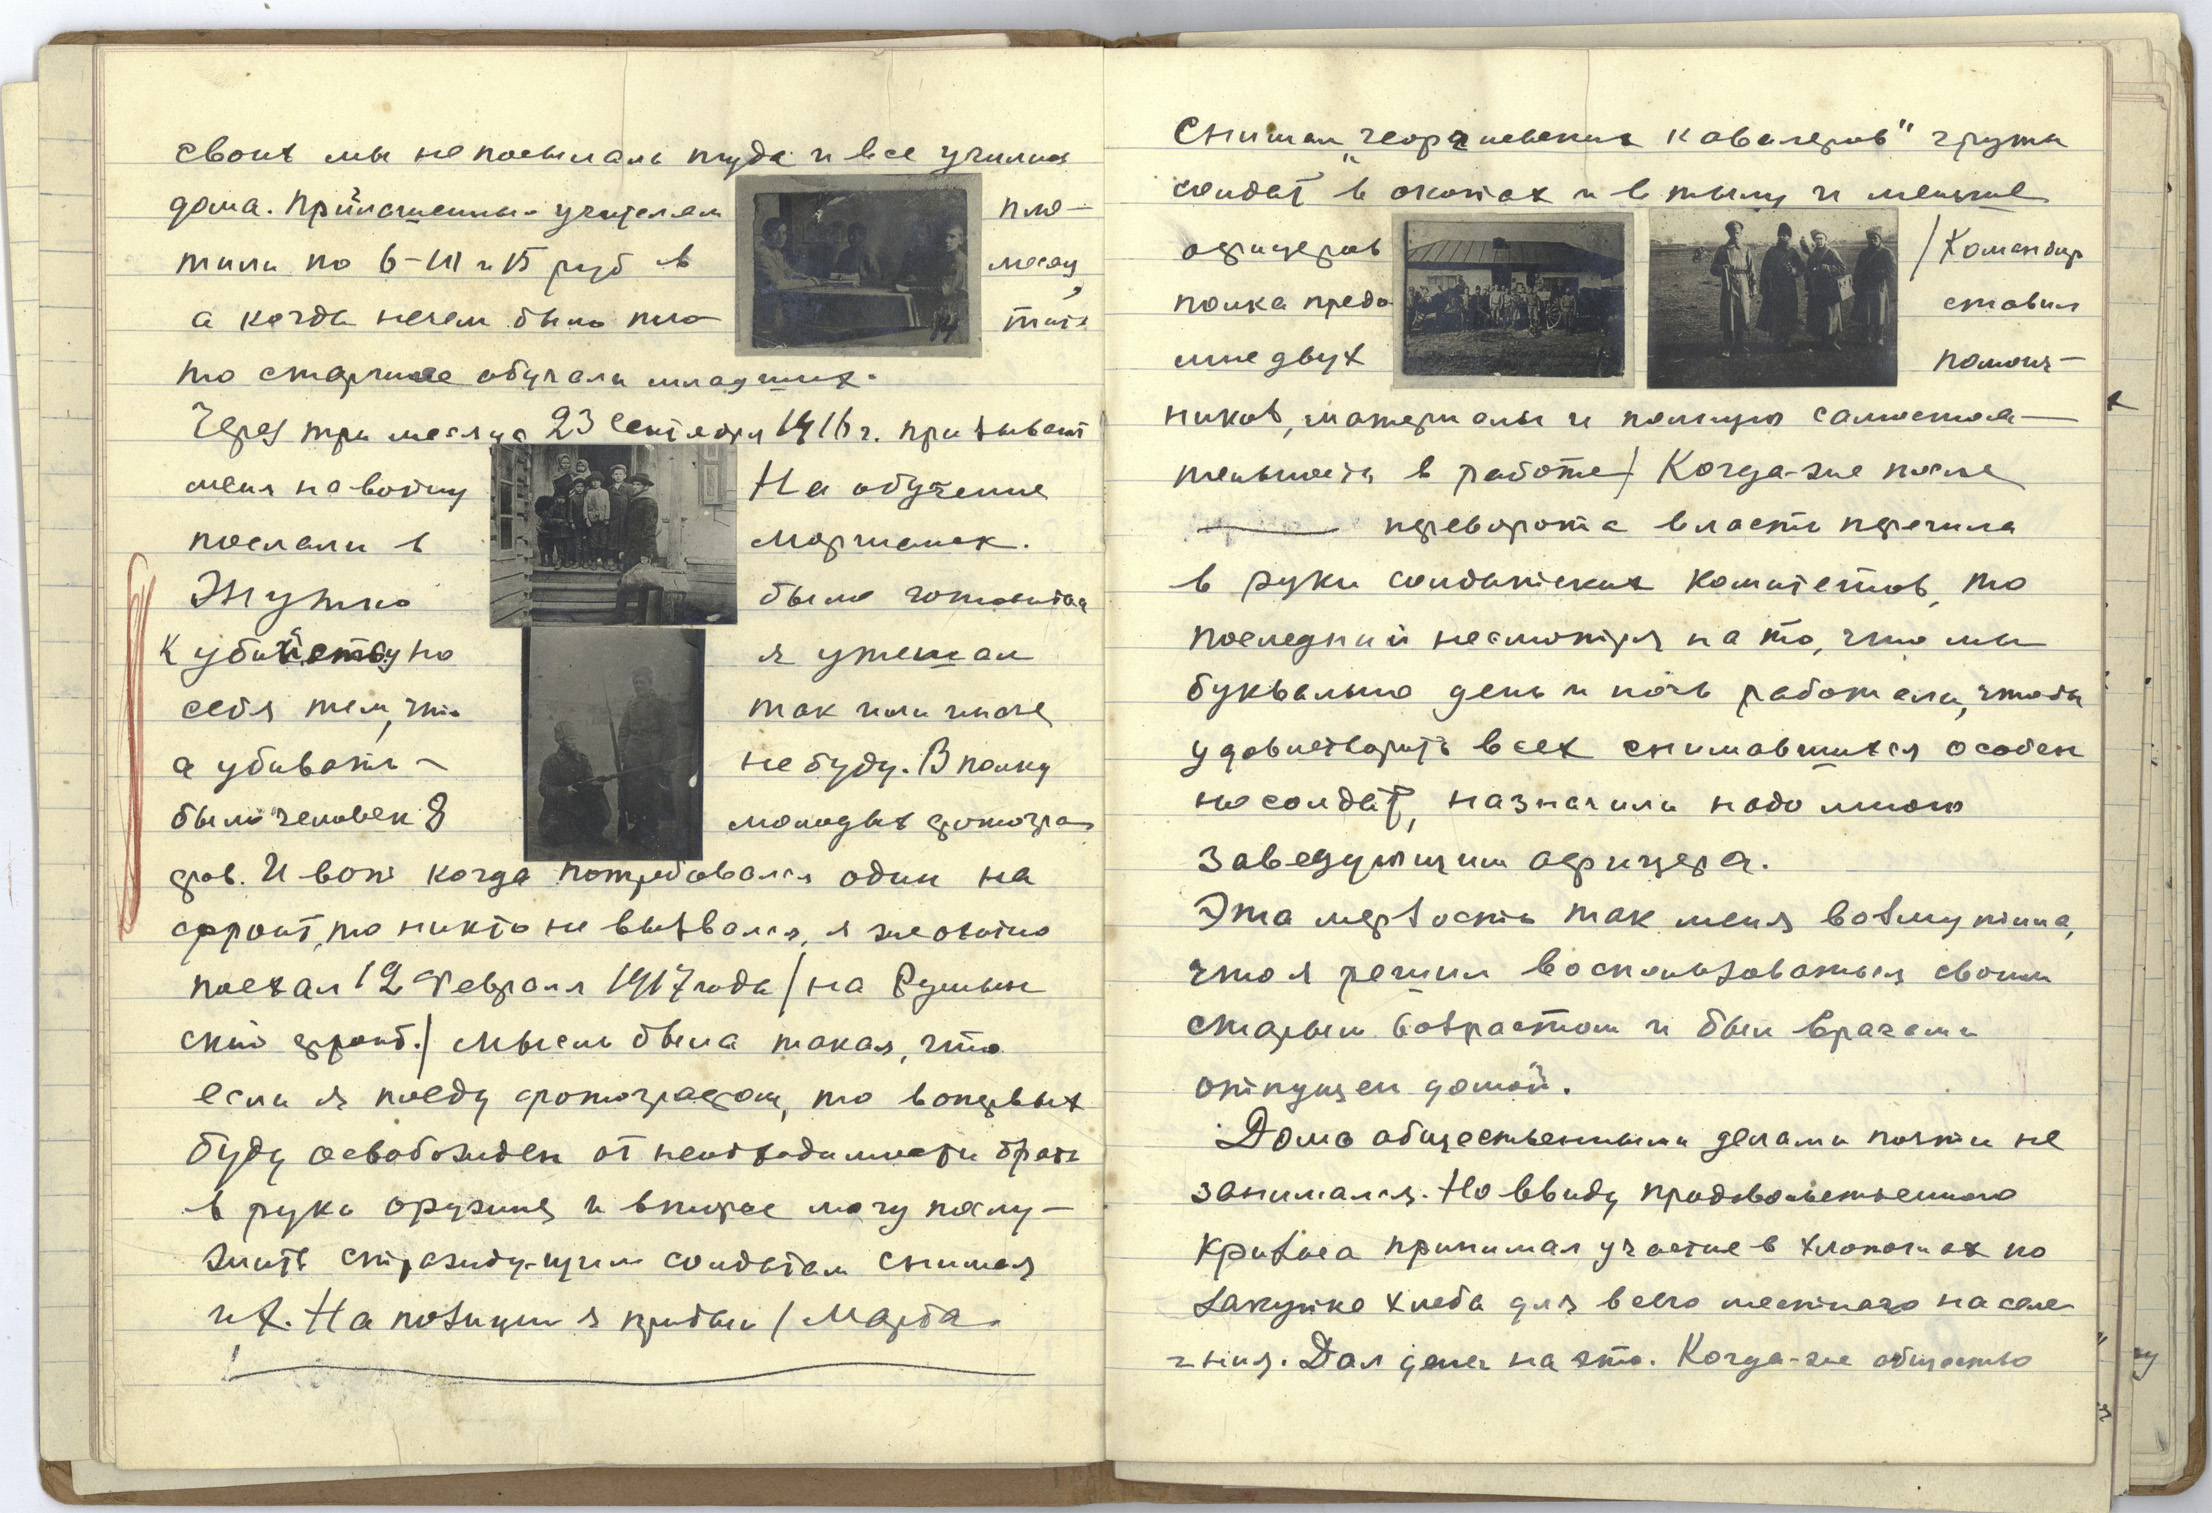 своих мы не посылали туда и все учились
дома. Приглашенным учителям пла-
тили по 6-10 и 15 руб в месяц,
а когда нечем было пла тить
то старшие обучали младших.
Через три месяца 23 Сентября 1916 г. призывают
меня на войну На обучение
послали в Моршанск.
Жутко было готовиться
к убийству но я утешал
себя тем, что так или иначе,
а убивать – не буду. В полку
было человек 8 молодых фотогра-
фов. И вот когда потребовался один на
фронт, то никто не вызвался, я же охотно
поехал 12 Февраля 1917 года / на Румын
ский фронт. / Мысль была такая, что
если я поеду фотографом, то вопервых
буду освобожден от необходимости брать
в руки оружие и второе могу послу-
жить страждущим солдатам снимая
их. На позиции я прибыл 1 Марта.
Снимал „георгиевских кавалеров" группы
солдат в окопах и в тылу и меньше
офицеров /Командир
полка предо ставил
мне двух помощ-
ников, материалы и полную самостоя-
тельность в работе/ Когда-же после
переворота власть перешла
в руки солдатских комитетов, то
последний несмотря на то, что мы
буквально день и ночь работали, чтобы
удовлетворить всех снимавшихся особен
но солдат, назначили надо мною
заведующим офицера.
Эта мерзость так меня возмутила,
что я решил воспользоваться своим
старым возрастом и был врачами
отпущен домой.
Дома общественными делами почти не
занимался. Но ввиду продовольственного
кризиса принимал участие в хлопотах по
закупке хлеба для всего местного населе
ния. Дал денег на это. Когда-же общество